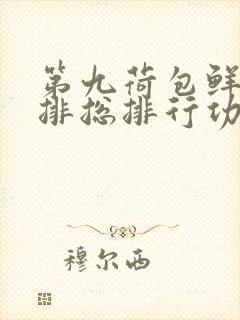 第九荷包鲜
排总排行功
穆尔西